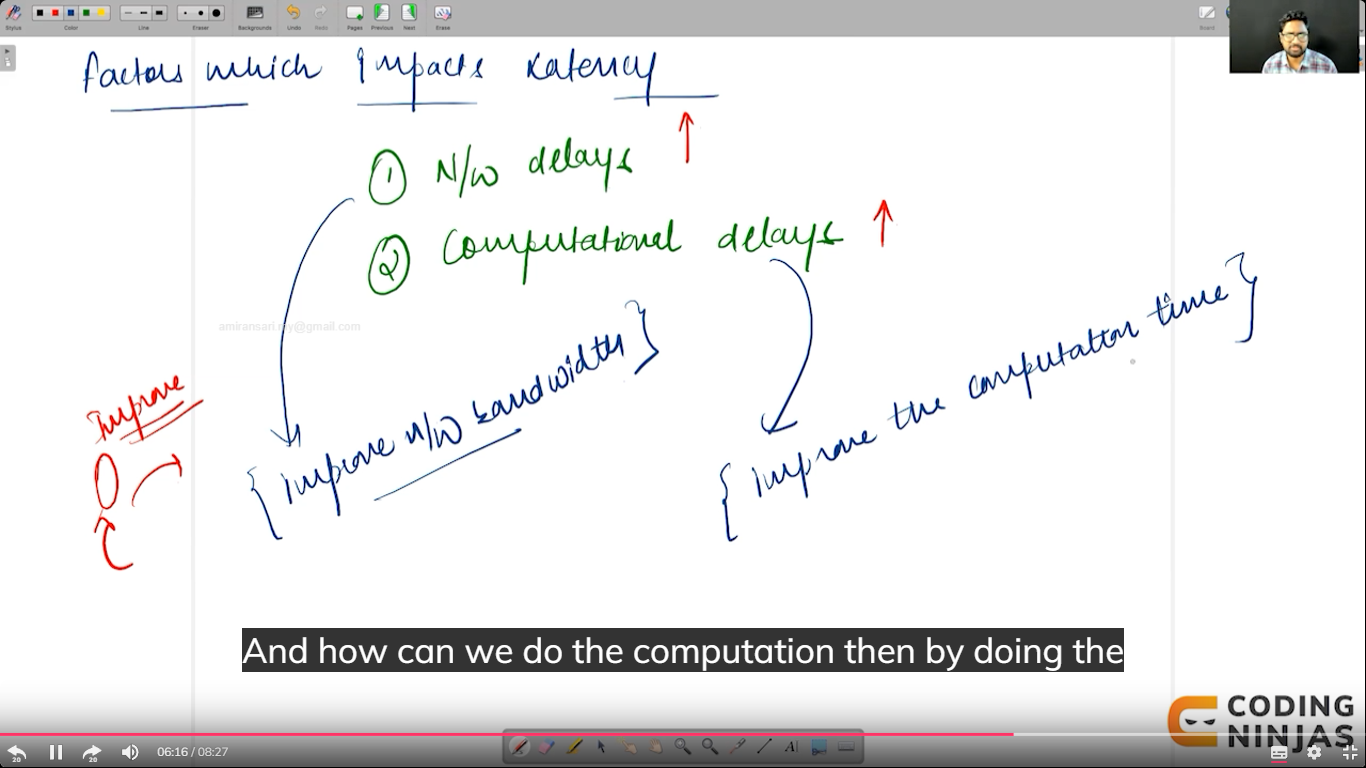 Stylus Color Line Eraser Backgrounds Undo Redo Pages Previous Next Erase Board
factors which Impacts Latency
① N/W delays
② Computational delays
amiransari.my@gmail.com
Improve
{ Improve N/W Bandwidth }
{ Improve the computation time }
And how can we do the computation then by doing the
CODING
NINJAS
20 20 06:16 / 08:27